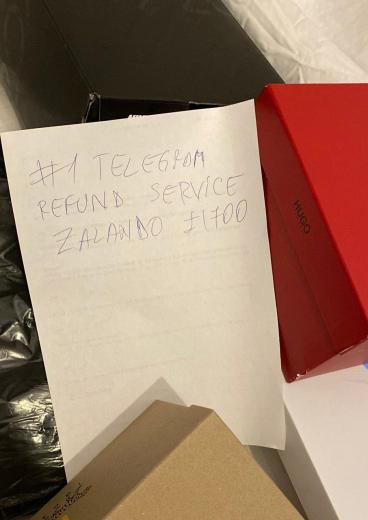 #1 TELEGRAM
REFUND SERVICE
ZALANDO £1700
HUGO